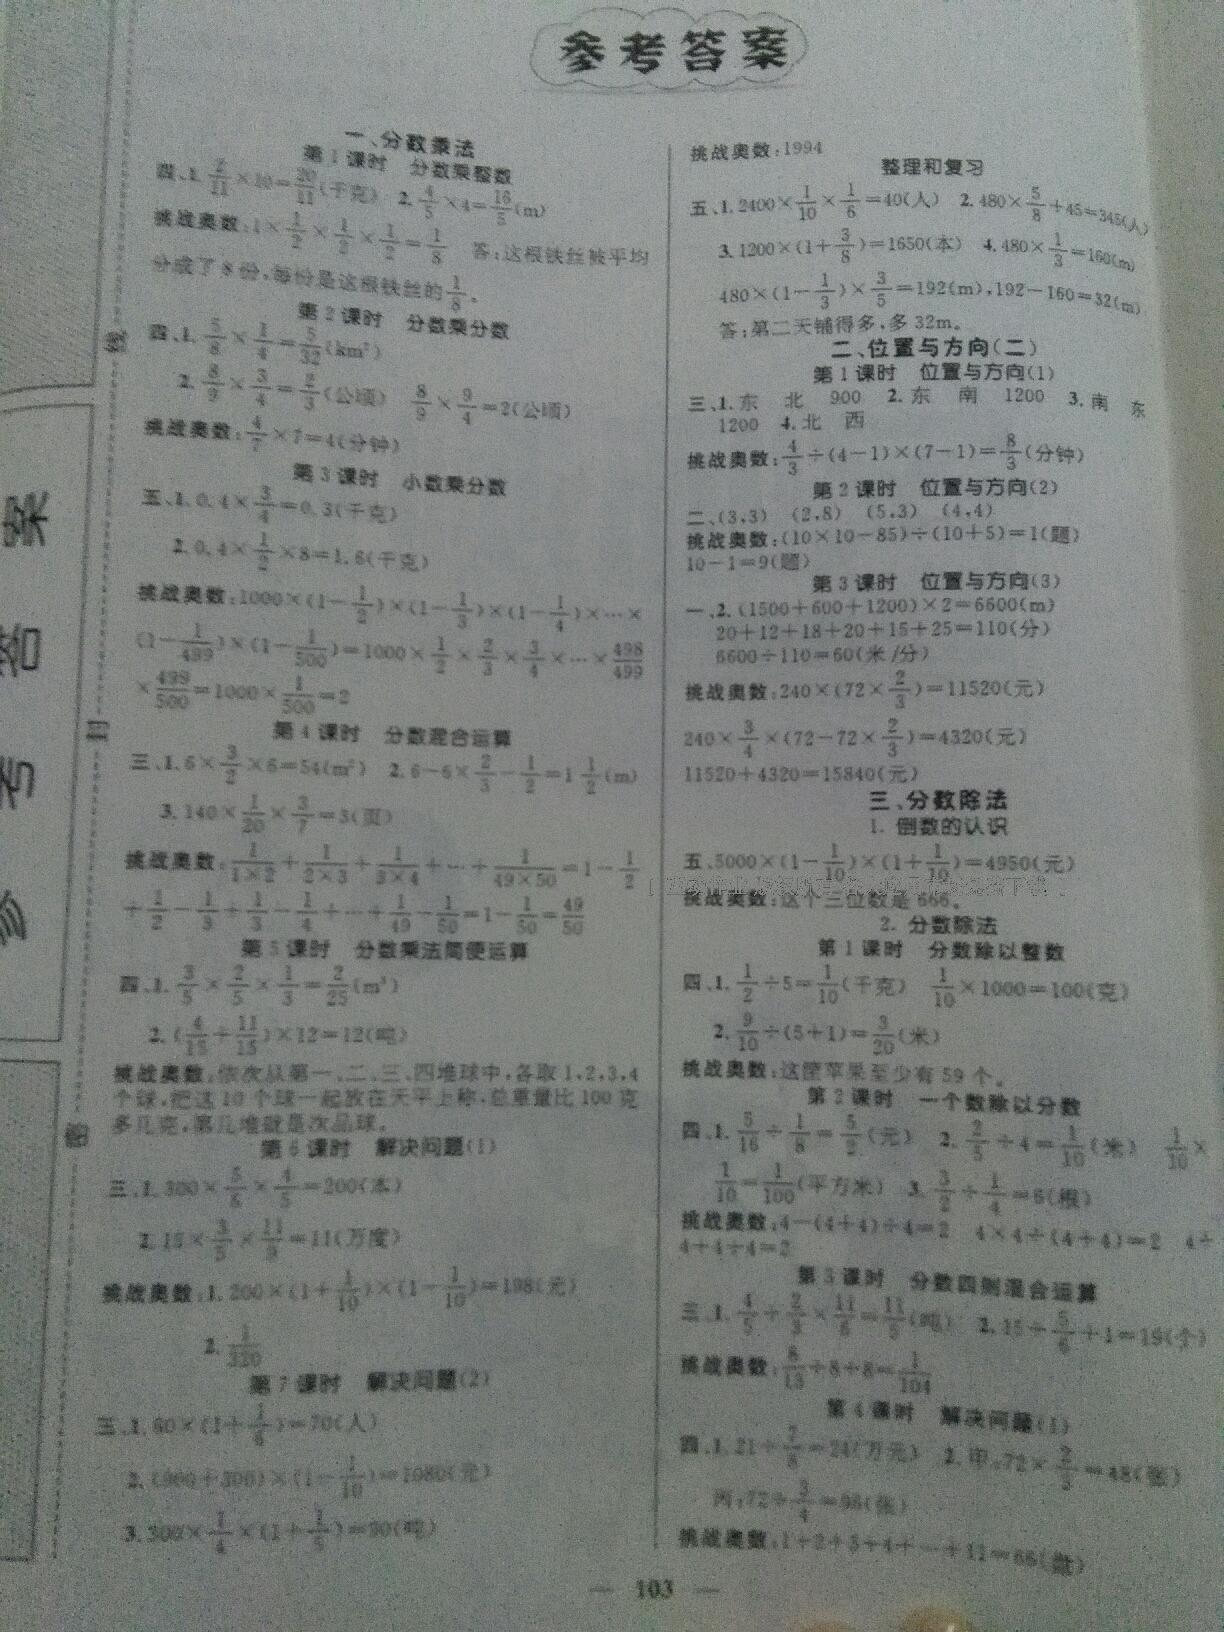 参考答案
一、分数乘法
第1课时 分数乘整数
四、1. 2/11×10=20/11(千克) 2. 4/5×4=16/5(m)
挑战奥数:1×1/2×1/2×1/2=1/8 答:这根铁丝被平均
分成了8份,每份是这根铁丝的1/8。
第2课时 分数乘分数
四、1. 5/8×1/4=5/32(km²)
2. 8/9×3/4=2/3(公顷) 8/9×9/4=2(公顷)
挑战奥数:4/7×7=4(分钟)
第3课时 小数乘分数
五、1. 0.4×3/4=0.3(千克)
2. 0.4×1/2×8=1.6(千克)
挑战奥数:1000×(1-1/2)×(1-1/3)×(1-1/4)×…×
(1-1/499)×(1-1/500)=1000×1/2×2/3×3/4×…×498/499
×499/500=1000×1/500=2
第4课时 分数混合运算
三、1. 6×3/2×6=54(m²) 2. 6-6×2/3-1/2=1 1/2(m)
3. 140×1/20×3/7=3(页)
挑战奥数:1/1×2+1/2×3+1/3×4+…+1/49×50=1-1/2
+1/2-1/3+1/3-1/4+…+1/49-1/50=1-1/50=49/50
第5课时 分数乘法简便运算
四、1. 3/5×2/5×1/3=2/25(m³)
2. (4/15+11/15)×12=12(吨)
挑战奥数:依次从第一、二、三、四堆球中,各取1,2,3,4
个球,把这10个球一起放在天平上称,总重量比100克
多几克,第几堆就是次品球。
第6课时 解决问题(1)
三、1. 300×5/6×4/5=200(本)
2. 15×3/5×11/9=11(万度)
挑战奥数:1. 200×(1+1/10)×(1-1/10)=198(元)
2. 1/320
第7课时 解决问题(2)
三、1. 60×(1+1/6)=70(人)
2. (900+300)×(1-1/10)=1080(元)
3. 300×1/4×(1+1/5)=90(吨)
挑战奥数:1994
整理和复习
五、1. 2400×1/10×1/6=40(人) 2. 480×5/8+45=345(人)
3. 1200×(1+3/8)=1650(本) 4. 480×1/3=160(m)
480×(1-1/3)×3/5=192(m),192-160=32(m)
答:第二天铺得多,多32m。
二、位置与方向(二)
第1课时 位置与方向(1)
三、1. 东 北 900 2. 东 南 1200 3. 南 东
1200 4. 北 西
挑战奥数:4/3÷(4-1)×(7-1)=8/3(分钟)
第2课时 位置与方向(2)
二、(3,3) (2,8) (5,3) (4,4)
挑战奥数:(10×10-85)÷(10+5)=1(题)
10-1=9(题)
第3课时 位置与方向(3)
一、2. (1500+600+1200)×2=6600(m)
20+12+18+20+15+25=110(分)
6600÷110=60(米/分)
挑战奥数:240×(72×2/3)=11520(元)
240×3/4×(72-72×2/3)=4320(元)
11520+4320=15840(元)
三、分数除法
1. 倒数的认识
五、5000×(1-1/10)×(1+1/10)=4950(元)
挑战奥数:这个三位数是666。
2. 分数除法
第1课时 分数除以整数
四、1. 1/2÷5=1/10(千克) 1/10×1000=100(克)
2. 9/10÷(5+1)=3/20(米)
挑战奥数:这筐苹果至少有59个。
第2课时 一个数除以分数
四、1. 5/16÷1/8=5/2(元) 2. 2/5÷4=1/10(米) 1/10×
1/10=1/100(平方米) 3. 3/2÷1/4=6(根)
挑战奥数:4-(4+4)÷4=2 4×4÷(4+4)=2 4÷
4+4÷4=2
第3课时 分数四则混合运算
三、1. 4/5÷2/3×11/6=11/5(吨) 2. 15÷5/6+1=19(个)
挑战奥数:8/13÷8÷8=1/104
第4课时 解决问题(1)
四、1. 21÷7/8=24(万元) 2. 甲:72×2/3=48(张)
丙:72÷3/4=96(张)
挑战奥数:1+2+3+4+…+11=66(盘)
103
线
封
密
参考答案